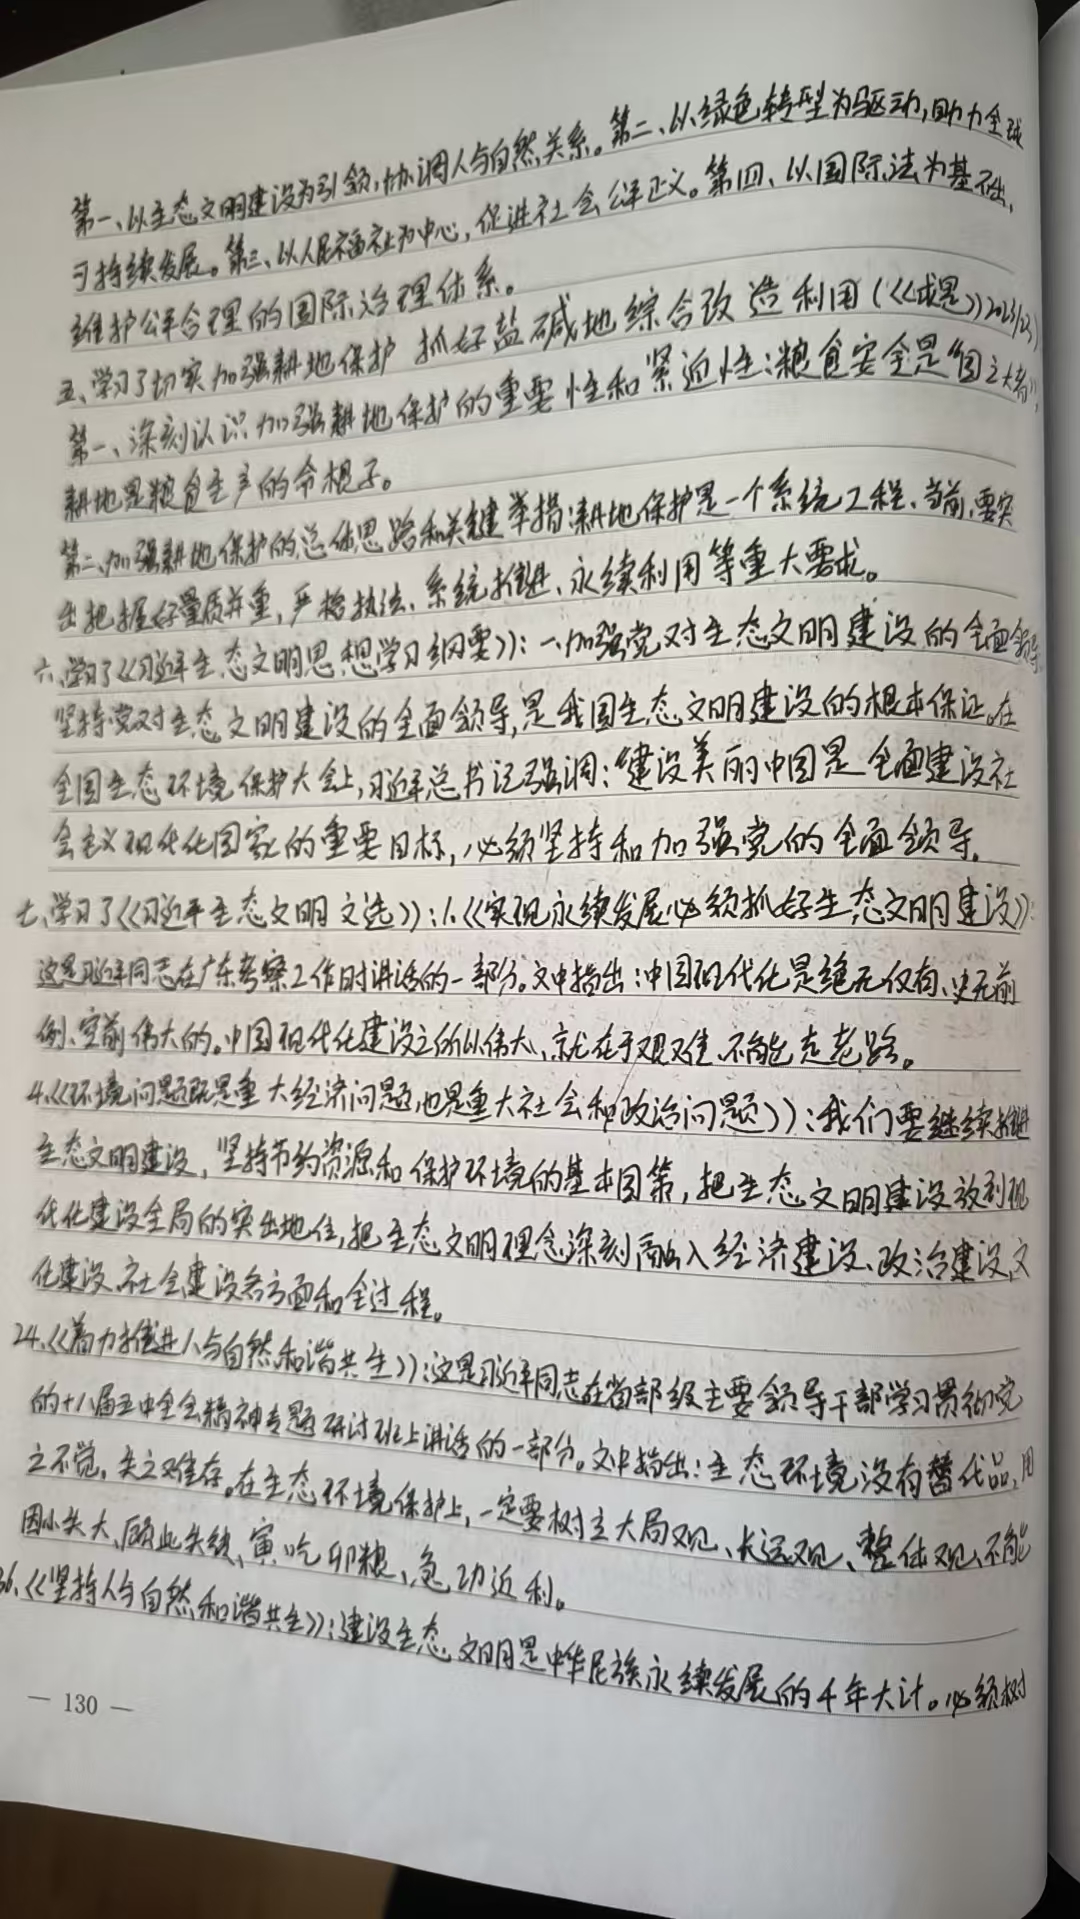 第一、以生态文明建设为引领,协调人与自然关系。第二、以绿色转型为驱动,助力全球
可持续发展。第三、以人民福祉为中心,促进社会公平正义。第四、以国际法为基础,
维护公平合理的国际治理体系。
五、学习了切实加强耕地保护 抓好盐碱地综合改造利用(《求是》2023/23)
第一、深刻认识加强耕地保护的重要性和紧迫性:粮食安全是“国之大者”,
耕地是粮食生产的命根子。
第二、加强耕地保护的总体思路和关键举措:耕地保护是一个系统工程、当前,要突
出把握好量质并重,严格执法、系统推进、永续利用等重大要求。
六、学习了《习近平生态文明思想学习纲要》:一、加强党对生态文明建设的全面领导,
坚持党对生态文明建设的全面领导,是我国生态文明建设的根本保证。在
全国生态环境保护大会上,习近平总书记强调:“建设美丽中国是全面建设社
会主义现代化国家的重要目标,必须坚持和加强党的全面领导。
七、学习了《习近平生态文明文选》:1.《实现永续发展必须抓好生态文明建设》:
这是习近平同志在广东考察工作时讲话的一部分。文中指出:中国现代化是绝无仅有、史无前
例、空前伟大的。中国现代化建设之所以伟大,就在于艰难,不能走老路。
4.《环境问题既是重大经济问题,也是重大社会和政治问题》:我们要继续推进
生态文明建设,坚持节约资源和保护环境的基本国策,把生态文明建设放到现
代化建设全局的突出地位,把生态文明理念深刻融入经济建设、政治建设、文
化建设、社会建设各方面和全过程。
24.《着力推进人与自然和谐共生》:这是习近平同志在省部级主要领导干部学习贯彻党
的十八届五中全会精神专题研讨班上讲话的一部分。文中指出:生态环境没有替代品,用
之不觉,失之难存。在生态环境保护上,一定要树立大局观、长远观、整体观,不能
因小失大、顾此失彼、寅吃卯粮、急功近利。
36.《坚持人与自然和谐共生》:建设生态文明是中华民族永续发展的千年大计。必须树
— 130 —